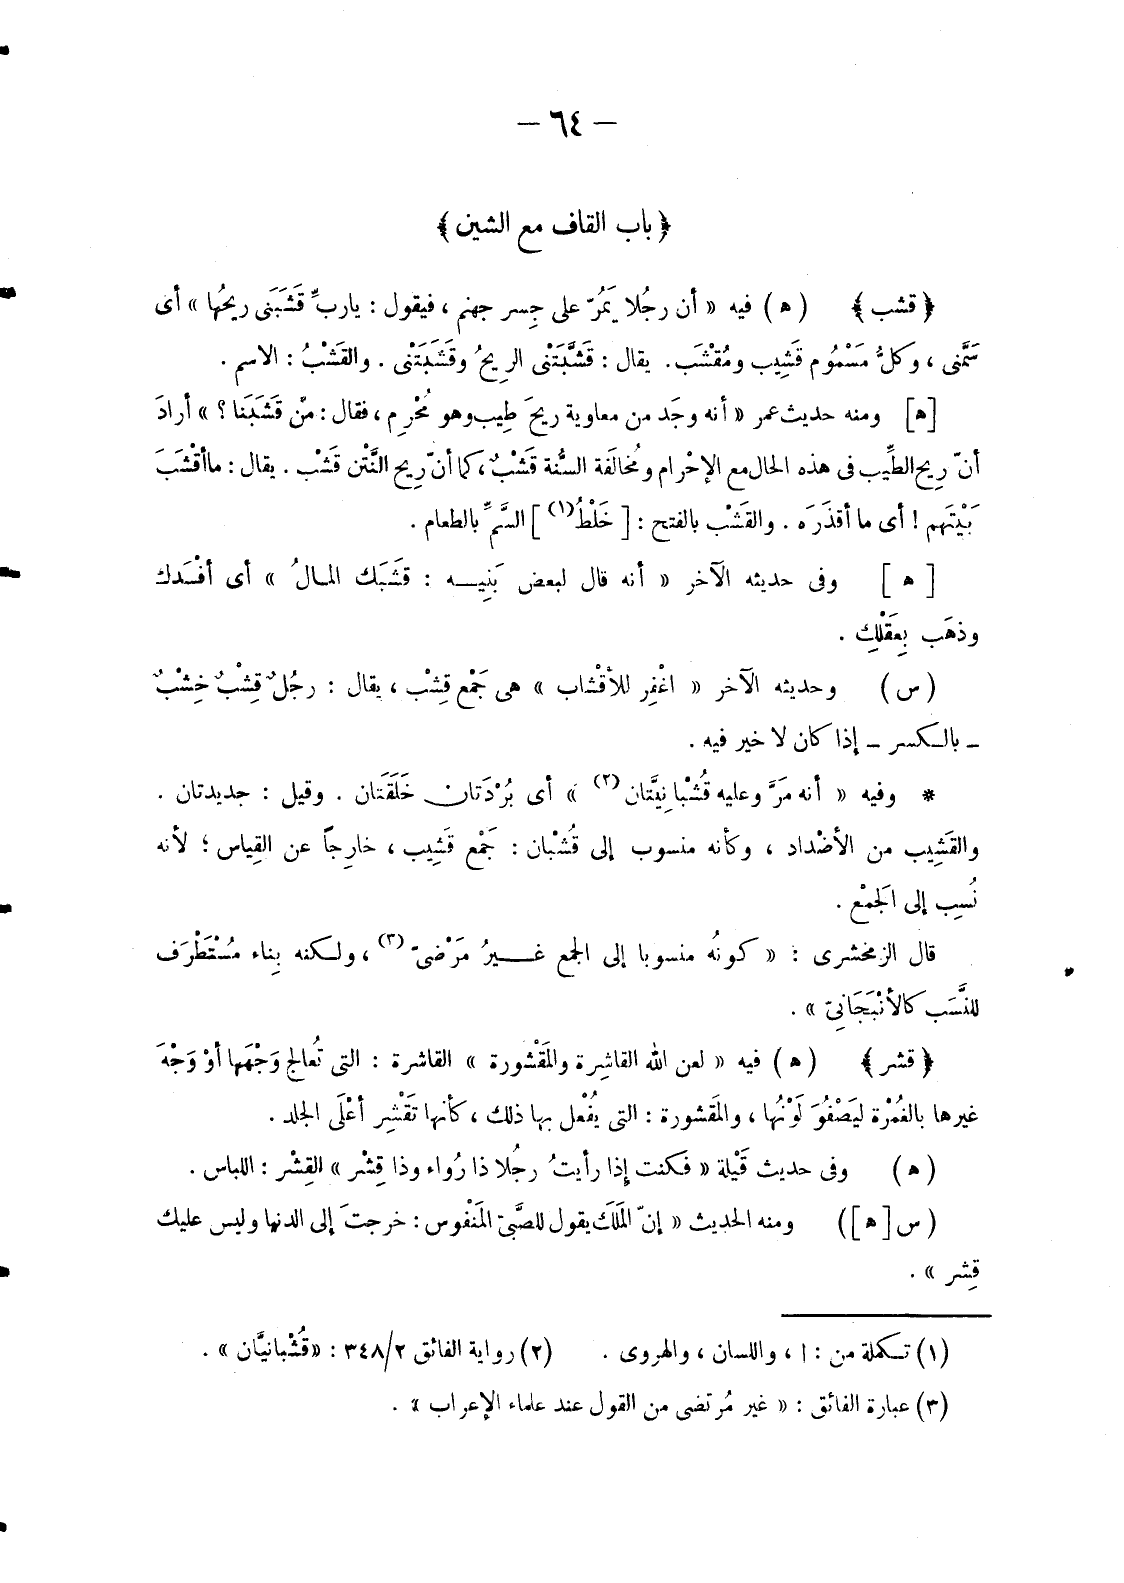 — ٦٤ —
﴿ باب القاف مع الشين ﴾
﴿ قشب ﴾ ( ه ) فيه « أن رجُلا يَمُرّ على جِسر جهنم ، فيقول : ياربِّ قَشَبَنى ريحُها » أى
سَمَّنى ، وكلُّ مَسْمُوم قَشِيب ومُقْشَب. يقال : قَشَّبَتْنى الريحُ وقَشَبَتْنى . والقَشْبُ : الاسم .
[ه] ومنه حديث عمر « أنه وجَد من معاوية ريحَ طِيب وهو مُحْرِم ، فقال : مَنْ قَشَبَنا ؟ » أرادَ
أنّ رِيح الطِّيب فى هذه الحال مع الإحْرام ومُخالَفة السُّنة قَشْبٌ، كما أنّ رِيح النَّتْن قَشْب . يقال : ما أقْشَبَ
بَيْتَهم ! أى ما أقذَرَه . والقَشْب بالفتح : [ خَلْطُ(١) ] السَّمِّ بالطعام .
[ ه ] وفى حديثه الآخر « أنه قال لبعض بَنِيه : قشَبَك المالُ » أى أفْسَدك
وذهَب بِعَقْلِك .
(س) وحديثه الآخر « اغْفِر للأقْشاب » هى جَمْع قِشْب ، يقال : رجُلٌ قِشْبٌ خِشْبٌ
ـ بالكسر ـ إذا كان لا خير فيه .
* وفيه « أنه مَرَّ وعليه قُشْبانِيَّتَان(٢) » أى بُرْدَتان خَلَقَتَان . وقيل : جديدتان .
والقَشِيب من الأضْداد ، وكأنه منسوب إلى قُشْبان : جَمْع قَشِيب ، خارِجاً عن القِياس ؛ لأنه
نُسِب إلى الَجمْع .
قال الزمخشرى : « كونُه منسوبا إلى الجمع غيرُ مَرْضىّ(٣) ، ولكنه بِناء مُسْتَطْرَف
للنَّسَب كالأنْبَجَانِىّ » .
﴿ قشر ﴾ ( ه ) فيه « لعن الله القاشِرة والمَقْشورة » القاشرة : التى تُعالج وَجْهَها أوْ وَجْهَ
غيرها بالغُمْرة ليَصْفُوَ لَوْنُها ، والمَقشورة : التى يُفْعل بها ذلك ، كأنها تَقْشِر أعْلَى الجلد .
(ه) وفى حديث قَيْلة « فكنت إذا رأيتُ رجُلا ذا رُواء وذا قِشْر » القِشْر : اللباس .
(س [ه]) ومنه الحديث « إنّ المَلَك يقول للصَّبىّ المَنْفوس : خرجتَ إلى الدنيا وليس عليك
قِشر » .
(١) تكملة من : ا ، واللسان ، والهروى . (٢) رواية الفائق ٣٤٨/٢ : «قُشْبانيَّان » .
(٣) عبارة الفائق : « غير مُرتضى من القول عند علماء الإعراب » .